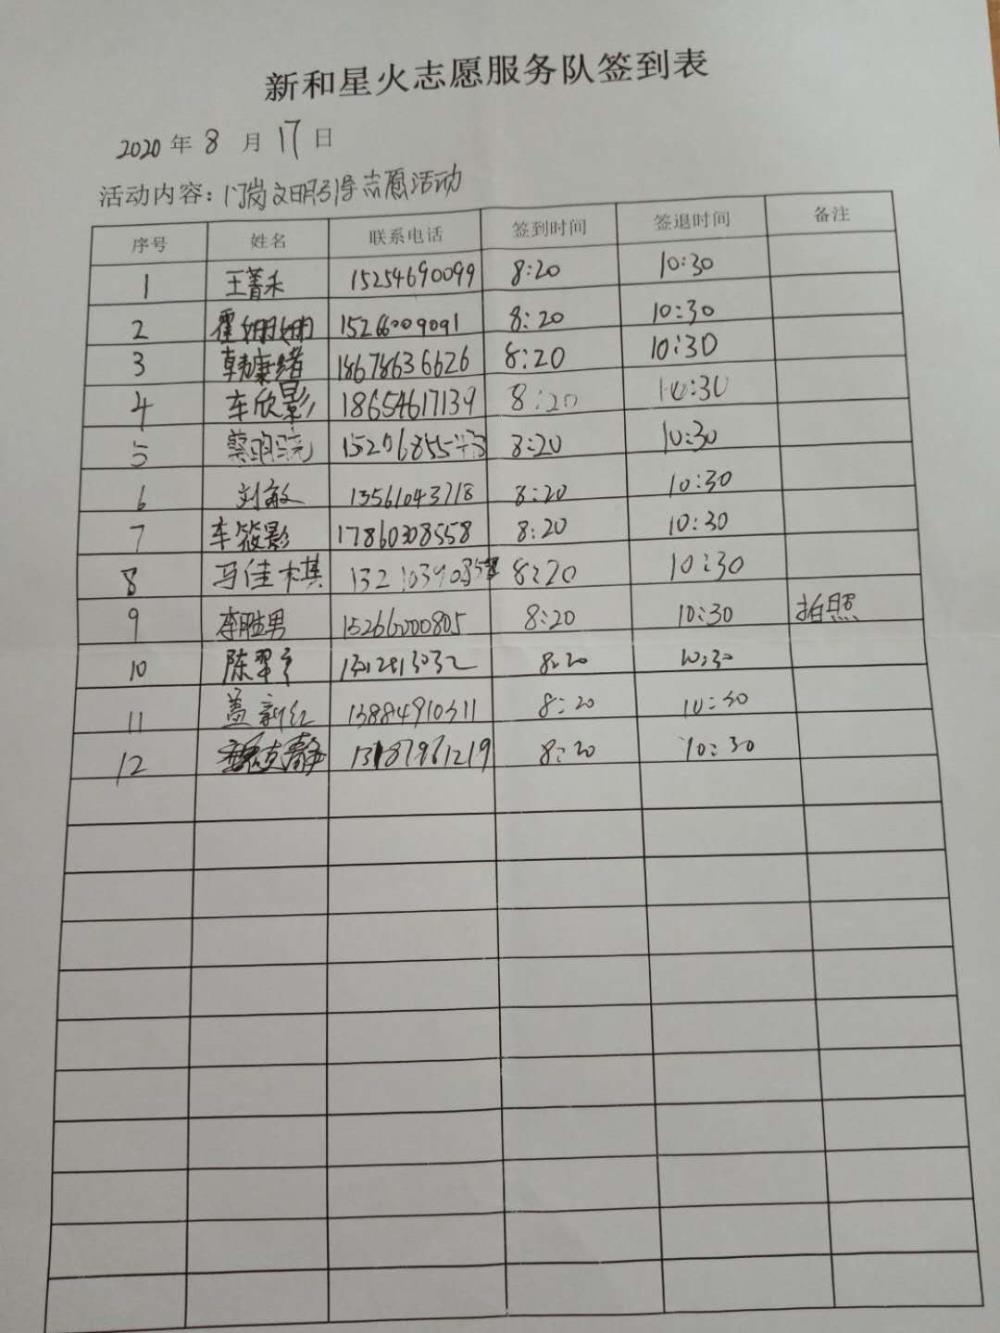 新和星火志愿服务队签到表
2020 年 8 月 17 日
活动内容：门岗文明引导志愿活动
序号 姓名 联系电话 签到时间 签退时间 备注
1 王菁禾 15254690099 8:20 10:30
2 霍姗姗 15266009091 8:20 10:30
3 韩康绪 18678636626 8:20 10:30
4 车欣影 18654617139 8:20 10:30
5 8:20 10:30
6 刘敏 13561043718 8:20 10:30
7 车筱影 17860308558 8:20 10:30
8 马佳棋 8:20 10:30
9 李胜男 15266000805 8:20 10:30 拍照
10 8:20 10:30
11 盖新红 13884910311 8:20 10:30
12 13187961219 8:20 10:30